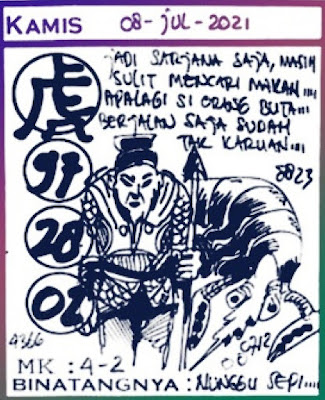 KAMIS 08-JUL-2021
JADI SARJANA SAJA, MASIH
SULIT MENCARI MAKAN....
APALAGI SI ORANG BUTA....
BERJALAN SAJA SUDAH
TAK KARUAN....
虎
8823
97
28
02
4366
0712
MK : 4-2
BINATANGNYA : NUNGGU SEPI....